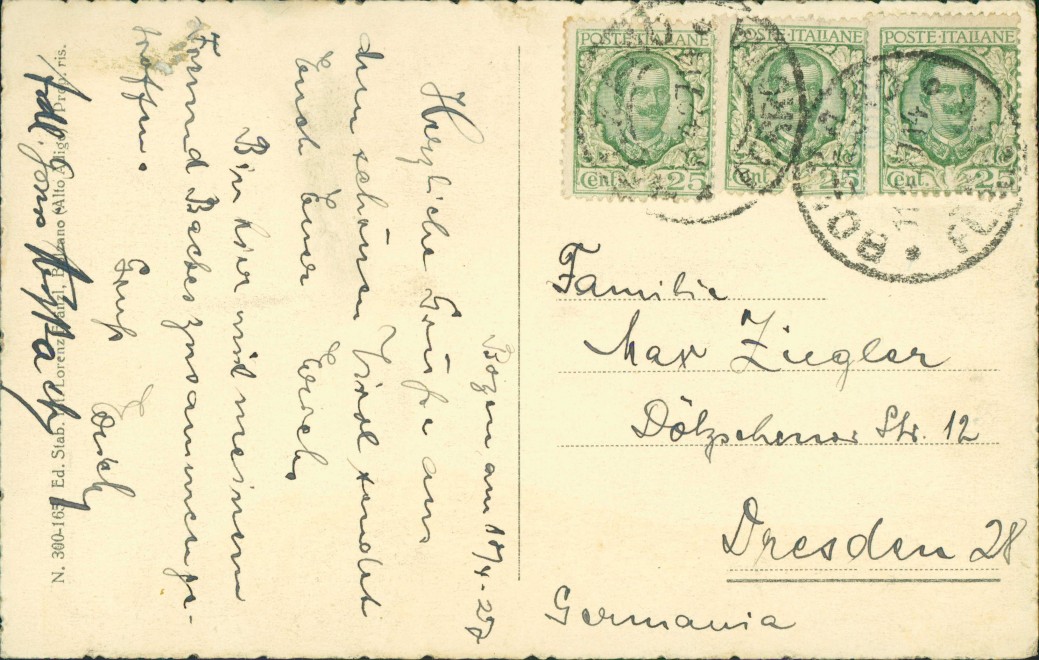 Bozen, am 18/4-27
Herzliche Grüße aus
dem schönen Tirol sendet
Euch Euer Erich
Bin hier mit meinem
Freund Baches zusammenge-
troffen.
Gruß Erich
N. 300-165 Ed. Stab. Lorenz Fränzl, Bolzano (Alto Adige)
POSTE·ITALIANE
Cent. 25
POSTE·ITALIANE
Cent. 25
POSTE·ITALIANE
Cent. 25
Familie
Max Ziegler
Dölzschener Str. 12
Dresden 28
Germania